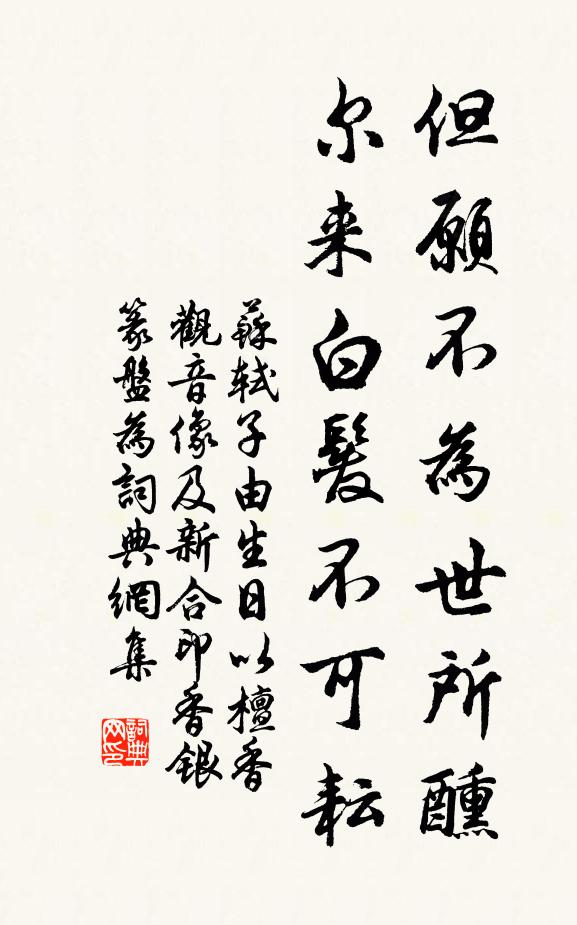 但願不為世所醺
尔来白髮不可耘
蘇軾子由生日以檀香
觀音像及新合印香銀
篆盤為詞典網集
詞典网印